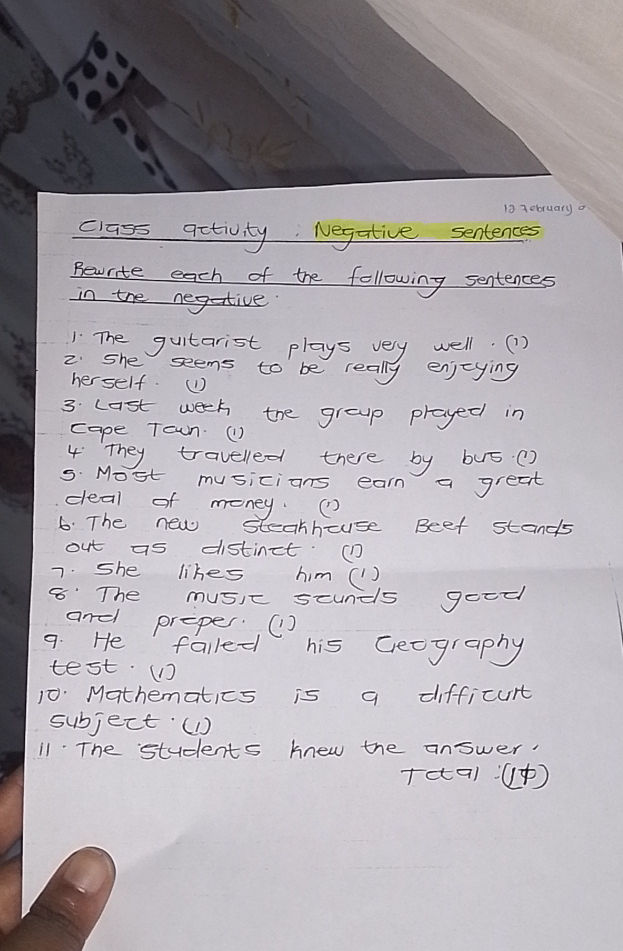 12 February
Class activity : Negative sentences
Rewrite each of the following sentences
in the negative.
1. The guitarist plays very well. (1)
2. She seems to be really enjoying
herself. (1)
3. Last week the group played in
Cape Town. (1)
4. They travelled there by bus. (1)
5. Most musicians earn a great
deal of money. (1)
6. The new steakhouse Beef stands
out as distinct. (1)
7. She likes him (1)
8. The music sounds good
and proper. (1)
9. He failed his Geography
test. (1)
10. Mathematics is a difficult
subject. (1)
11. The students knew the answer.
Total :